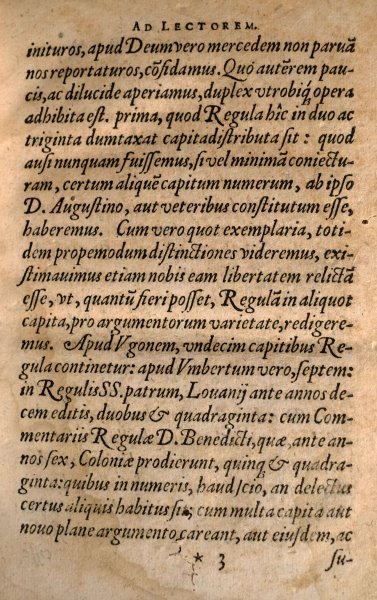 AD LECTOREM.
inituros, apud Deum vero mercedem non paruã
nos reportaturos, cõfidamus. Quó autẽrem pau-
cis, ac dilucide aperiamus, duplex vtrobiq; opera
adhibita est. prima, quod Regula hîc in duo ac
triginta dumtaxat capita distributa sit: quod
ausi nunquam fuissemus, si vel minimã coniectu-
ram, certum aliquẽ capitum numerum, ab ipso
D. Augustino, aut veteribus constitutum esse,
haberemus. Cum vero quot exemplaria, toti-
dem propemodum distinctiones videremus, exi-
stimauimus etiam nobis eam libertatem relictã
esse, vt, quantũ fieri posset, Regulã in aliquot
capita, pro argumentorum varietate, redigere-
mus. Apud Vgonem, vndecim capitibus Re-
gula continetur: apud Vmbertum vero, septem:
in Regulis SS. patrum, Louanij ante annos de-
cem editis, duobus & quadraginta: cum Com-
mentariis Regulæ D. Benedicti, quæ, ante an-
nos sex, Coloniæ prodierunt, quinq; & quadra-
ginta: quibus in numeris, haud scio, an delectus
certus aliquis habitus sit; cum multa capita aut
nouo plane argumento careant, aut eiusdem, ac
* 3 su-